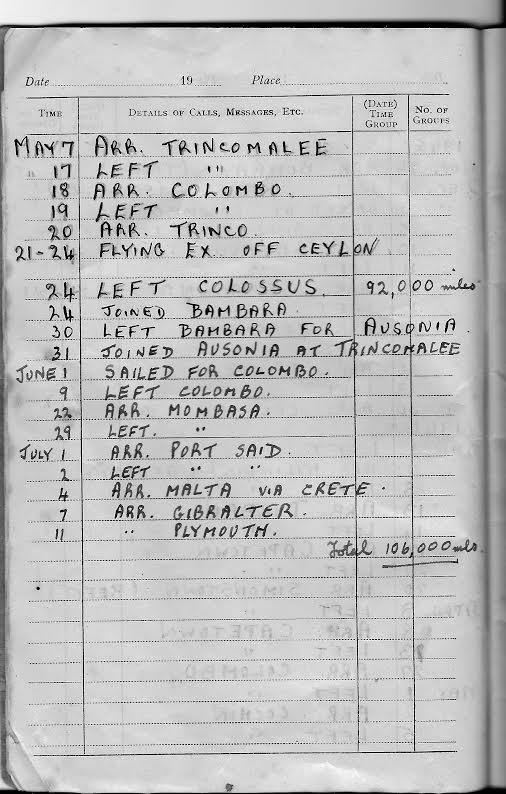 Date 19 Place
TIME DETAILS OF CALLS, MESSAGES, ETC. (DATE) TIME GROUP NO. OF GROUPS
MAY 7 ARR. TRINCOMALEE
" 17 LEFT "
18 ARR. COLOMBO.
19 LEFT "
20 ARR. TRINCO.
21-24 FLYING EX. OFF CEYLON
24 LEFT COLOSSUS. 92,000 miles
24 JOINED BAMBARA.
30 LEFT BAMBARA FOR AUSONIA.
31 JOINED AUSONIA AT TRINCOMALEE
JUNE 1 SAILED FOR COLOMBO.
9 LEFT COLOMBO.
22 ARR. MOMBASA.
29 LEFT. "
JULY 1 ARR. PORT SAID.
2 LEFT " "
4 ARR. MALTA VIA CRETE.
7 ARR. GIBRALTER.
11 " PLYMOUTH.
Total 106,000 mls.